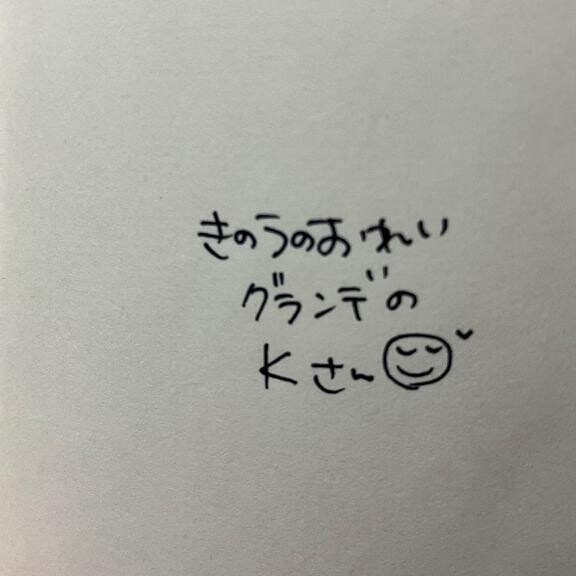 きのうのおれい
グランデの
Kさん